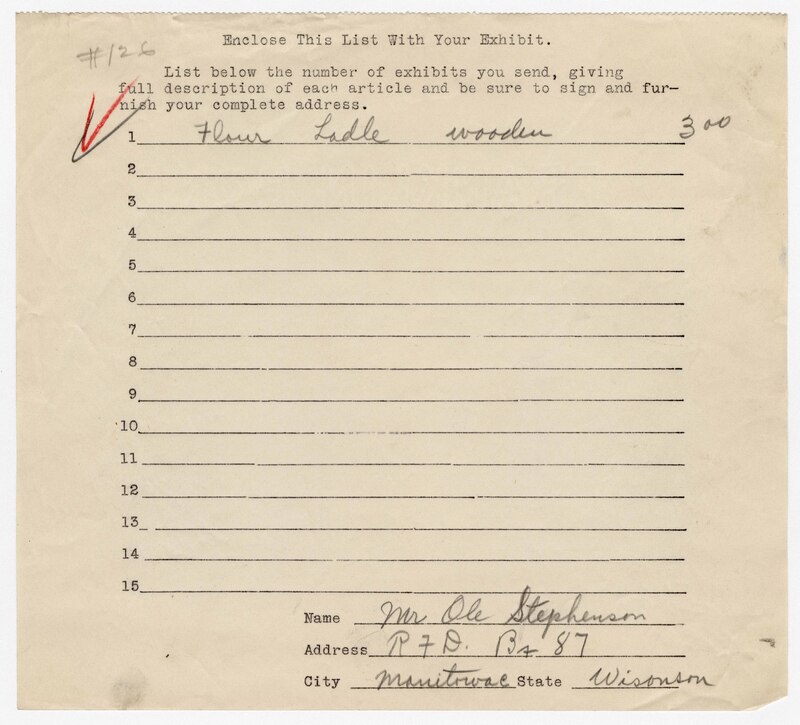 #126
Enclose This List With Your Exhibit.
List below the number of exhibits you send, giving
full description of each article and be sure to sign and fur-
nish your complete address.
1 Flour Ladle wooden 3 00
2
3
4
5
6
7
8
9
10
11
12
13
14
15
Name Mr Ole Stephenson
Address R F D. Bx 87
City Manitowac State Wisonson